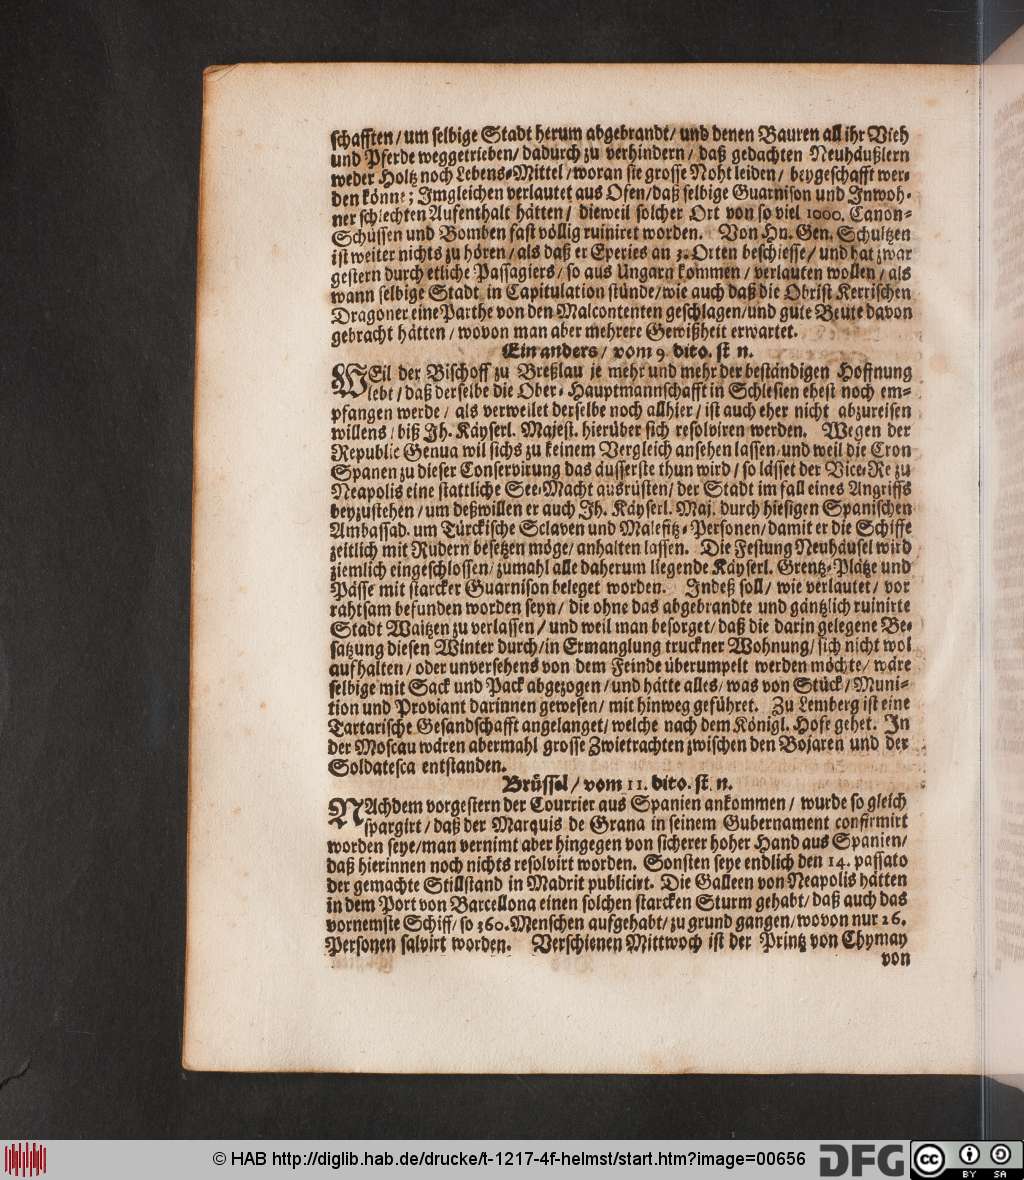 schafften / um selbige Stadt herum abgebrandt / und denen Bauren all ihr Vieh
und Pferde weggetrieben / dadurch zu verhindern / daß gedachten Neuhäußlern
weder Holtz noch Lebens-Mittel / woran sie grosse Noht leiden / beygeschafft wer-
den könne; Imgleichen verlautet aus Ofen / daß selbige Guarnison und Inwoh-
ner schlechten Aufenthalt hätten / dieweil solcher Ort von so viel 1000. Canon-
Schüssen und Bomben fast völlig ruiniret worden. Von Hn. Gen. Schultzen
ist weiter nichts zu hören / als daß er Eperies an 3. Orten beschiesse / und hat zwar
gestern durch etliche Passagiers / so aus Ungarn kommen / verlauten wollen / als
wann selbige Stadt in Capitulation stünde / wie auch daß die Obrist Kerrischen
Dragoner eine Parthe von den Malcontenten geschlagen / und gute Beute davon
gebracht hätten / wovon man aber mehrere Gewißheit erwartet.
Ein anders / vom 9. dito. st. n.
WEil der Bischoff zu Breßlau je mehr und mehr der beständigen Hoffnung
lebt / daß derselbe die Ober-Hauptmannschafft in Schlesien ehest noch em-
pfangen werde / als verweilet derselbe noch allhier / ist auch eher nicht abzureisen
willens / biß Ih. Käyserl. Majest. hierüber sich resolviren werden. Wegen der
Republic Genua wil sichs zu keinem Vergleich ansehen lassen / und weil die Cron
Spanen zu dieser Conservirung das äusserste thun wird / so lässet der Vice-Re zu
Neapolis eine stattliche See-Macht ausrüsten / der Stadt im fall eines Angriffs
beyzustehen / um deßwillen er auch Ih. Käyserl. Maj. durch hiesigen Spanischen
Ambassad. um Türckische Sclaven und Malefitz-Personen / damit er die Schiffe
zeitlich mit Rudern besetzen möge / anhalten lassen. Die Festung Neuhäusel wird
ziemlich eingeschlossen / zumahl alle daherum liegende Käyserl. Grentz-Plätze und
Pässe mit starcker Guarnison beleget worden. Indeß soll / wie verlautet / vor
rahtsam befunden worden seyn / die ohne das abgebrandte und gäntzlich ruinirte
Stadt Waitzen zu verlassen / und weil man besorget / daß die darin gelegene Be-
satzung diesen Winter durch / in Ermanglung truckner Wohnung / sich nicht wol
aufhalten / oder unversehens von dem Feinde überumpelt werden möchte / wäre
selbige mit Sack und Pack abgezogen / und hätte alles / was von Stück / Muni-
tion und Proviant darinnen gewesen / mit hinweg geführet. Zu Lemberg ist eine
Tartarische Gesandschafft angelanget / welche nach dem Königl. Hofe gehet. In
der Moscau wären abermahl grosse Zwietrachten zwischen den Bojaren und der
Soldatesca entstanden.
Brüssel / vom 11. dito. st. n.
NAchdem vorgestern der Courrier aus Spanien ankommen / wurde so gleich
spargirt / daß der Marquis de Grana in seinem Gubernament confirmirt
worden seye / man vernimt aber hingegen von sicherer hoher Hand aus Spanien /
daß hierinnen noch nichts resolvirt worden. Sonsten seye endlich den 14. passato
der gemachte Stillstand in Madrit publicirt. Die Galleen von Neapolis hätten
in dem Port von Barcellona einen solchen starcken Sturm gehabt / daß auch das
vornemste Schiff / so 360. Menschen aufgehabt / zu grund gangen / wovon nur 26.
Personen salvirt worden. Verschienen Mittwoch ist der Printz von Chymay
von
© HAB http://diglib.hab.de/drucke/t-1217-4f-helmst/start.htm?image=00656
DFG
cc BY SA